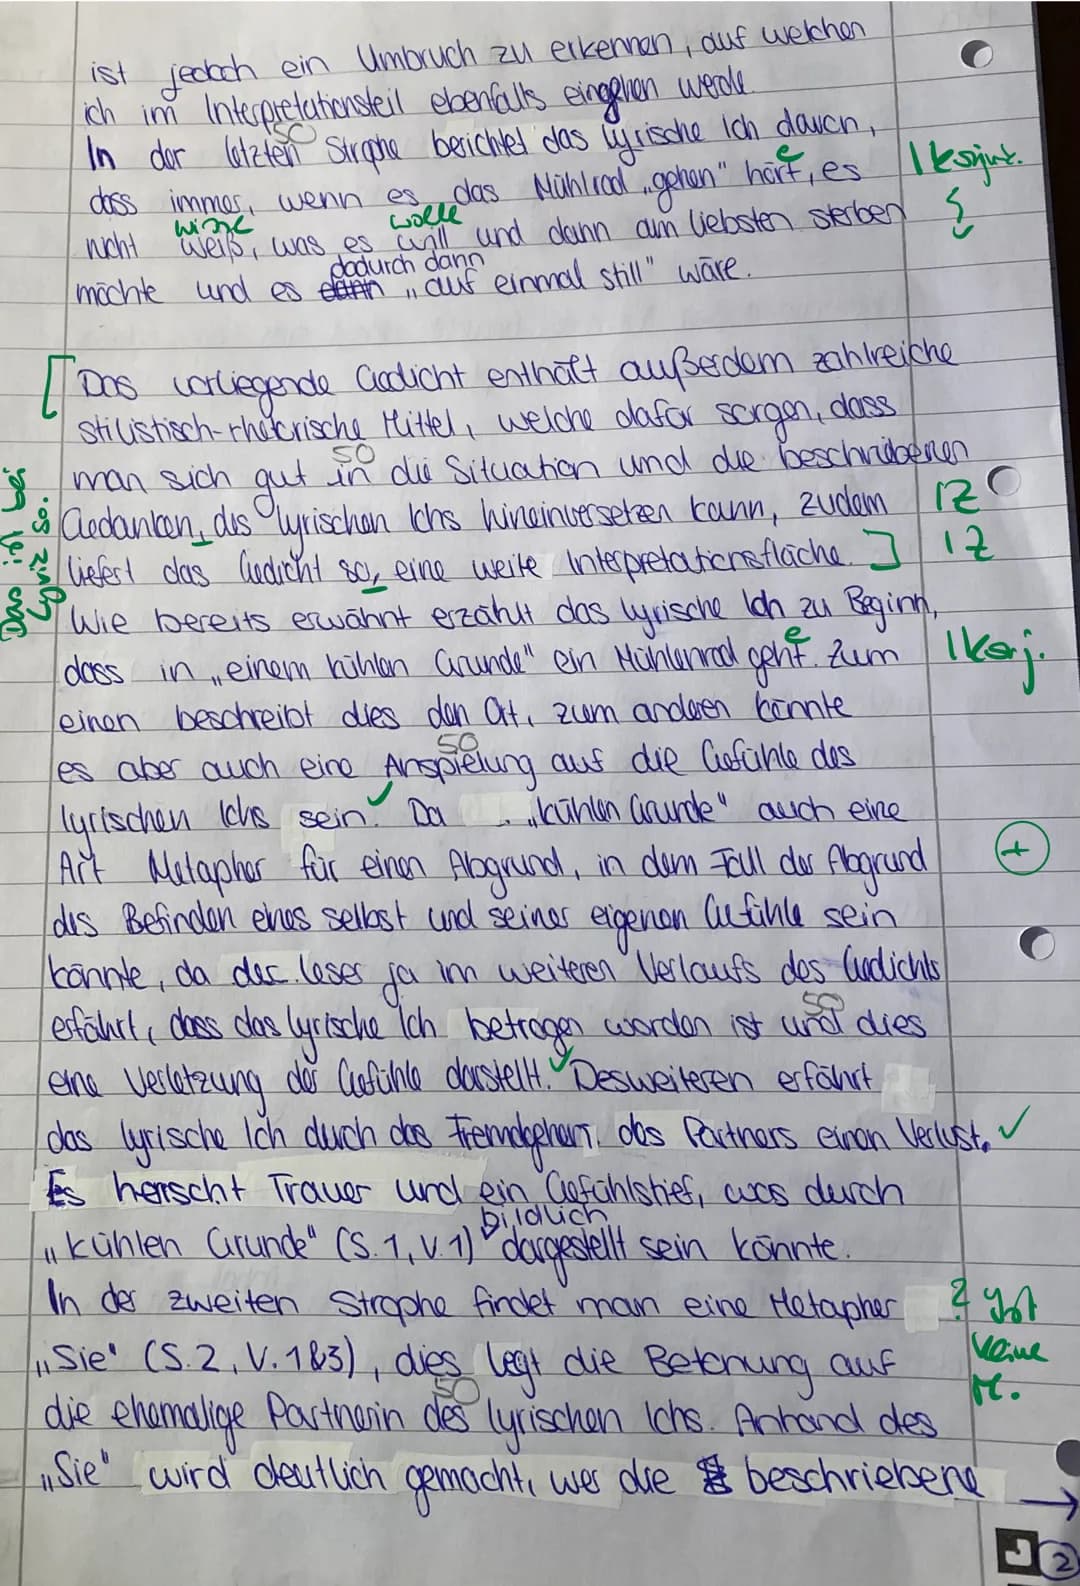 ist jedoch ein Umbruch zu erkennen, auf welchen
ich im Interpretationsteil ebenfalls eingehen werde.
50
In der letzten Strophe berichtet das lyrische Ich davon,
dass immer, wenn es das Mühlrad „gehen" hört, es
e
1 Konjunkt.
wisse wolle
nicht weiß, was es will und dann am liebsten sterben
dadurch dann
möchte und es dann „auf einmal still" wäre.
[Das vorliegende Gedicht enthält außerdem zahlreiche
stilistisch-rhetorische Mittel, welche dafür sorgen, dass
50
man sich gut in die Situation und die beschriebenen
Gedanken, des lyrischen Ichs hineinversetzen kann, zudem
1Z
liefert das Gedicht so, eine weite Interpretationsfläche.]
1Z
Das ist bei
Lyrik so.
Wie bereits erwähnt erzählt das lyrische Ich zu Beginn,
dass in „einem kühlen Grunde" ein Mühlenrad geht. Zum
e
1 Konj.
einen beschreibt dies den Ort, zum anderen könnte
50
es aber auch eine Anspielung auf die Gefühle des
lyrischen Ichs sein. Da „kühlen Grunde" auch eine
Art Metapher für einen Abgrund, in dem Fall der Abgrund
+
des Befinden eines selbst und seiner eigenen Gefühle sein
könnte, da der Leser ja im weiteren Verlaufs des Gedichts
50
erfährt, dass das lyrische Ich betrogen worden ist und dies
eine Verletzung der Gefühle darstellt. Desweiteren erfährt
das lyrische Ich durch das Fremdgehen des Partners einen Verlust.
Es herrscht Trauer und ein Gefühlstief, was durch
bildlich
„kühlen Grunde" (S.1, V.1) dargestellt sein könnte.
In der zweiten Strophe findet man eine Metapher
? Ist
keine
M.
„Sie" (S.2, V.1&3), dies legt die Betonung auf
50
die ehemalige Partnerin des lyrischen Ichs. Anhand des
„Sie" wird deutlich gemacht, wer die beschriebene
2